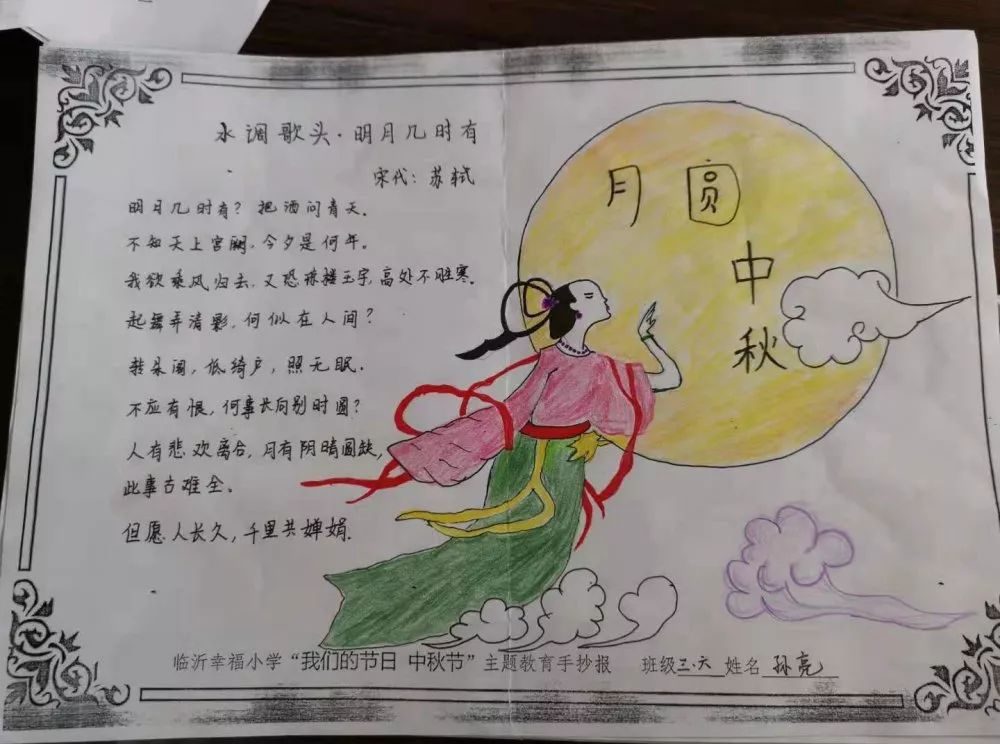 水调歌头·明月几时有
宋代：苏轼
明月几时有？把酒问青天。
不知天上宫阙，今夕是何年。
我欲乘风归去，又恐琼楼玉宇，高处不胜寒。
起舞弄清影，何似在人间？
转朱阁，低绮户，照无眠．
不应有恨，何事长向别时圆？
人有悲欢离合，月有阴晴圆缺，
此事古难全。
但愿人长久，千里共婵娟．
月圆
中
秋
临沂幸福小学“我们的节日 中秋节”主题教育手抄报 班级三.六 姓名孙亮